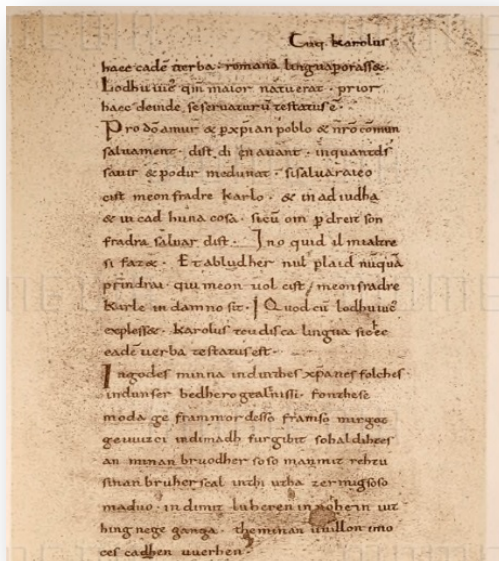 Cũq karolus
haec eadẽ uerba romana lingua porass&·
Lodhuuic' qm̃ maior natu erat · prior
haec deinde se seruaturũ testatus ẽ ·
Pro dõ amur & pxp̃ian poblo & nr̃o cõmun
saluament · dist di en auant · inquantds̃
sauir & podir medunat · sisaluaraieo
cist meonfradre karlo · & in adiudha
& in cad huna cosa · sicũ om p dreit son
fradra saluar dist · Ino quid il mialtre
si faz& · Et abludher nul plaid nũquã
prindrai · qui meon uol cist / meonfradre
karle in damno sit · Quodcũ lodhuuic'
expless& · karolus teudisca lingua sic ec
eadẽ uerba testatus est ·
Ingodes minna induithes xp̃anes folches ·
indunser bedhero gealtnissi · fonthese
moda ge frammordesso framso mirgot
geuuizci indimadh furgibit sohaldihtes
an minan bruodher soso manmit rehtu
sinan bruher scal inthi utha zermigsoso
maduo · indimit luheren innoheinuit
hing nege ganga · theminan uuillon imo
ces cadhen uuerhen ·